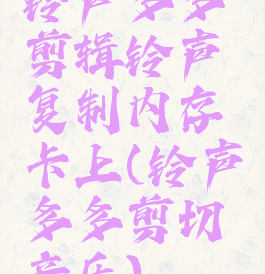 铃声多多
剪辑铃声
复制内存
卡上(铃声
多多剪切
音乐)